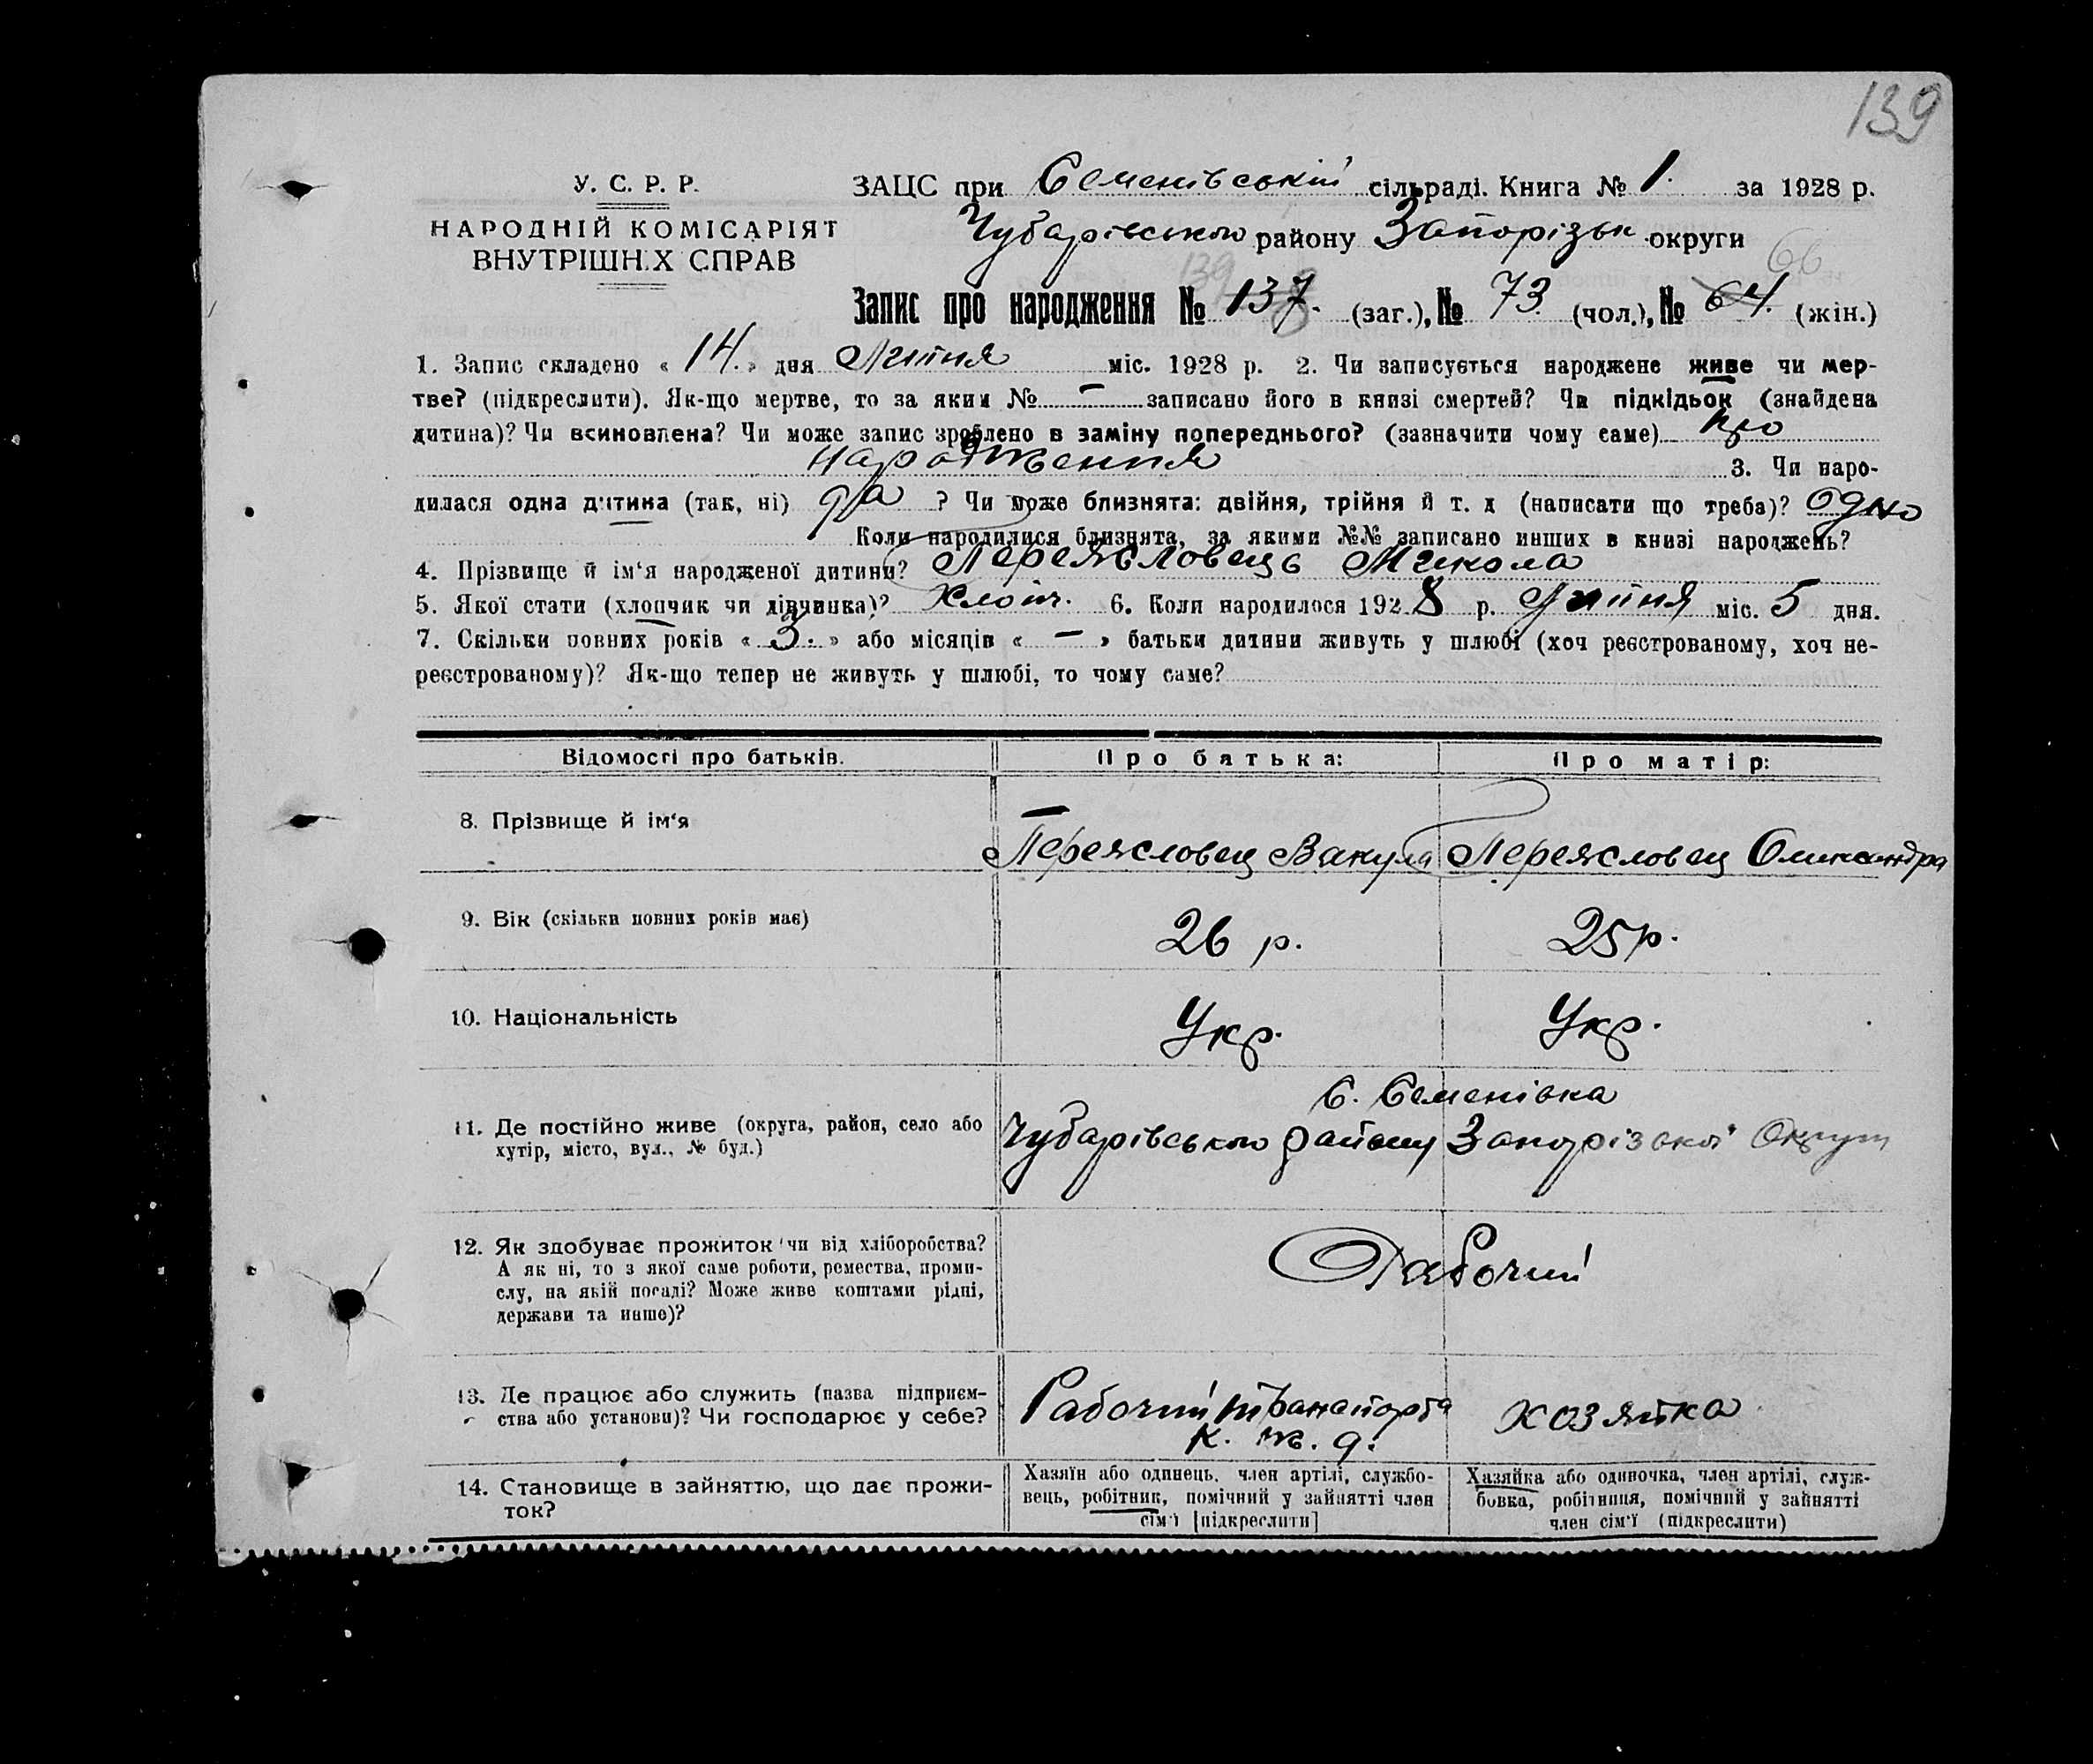 139
У. С. Р. Р.
НАРОДНІЙ КОМІСАРІЯТ
ВНУТРІШН.Х СПРАВ
ЗАЦС при Семенівський сільраді. Книга № 1. за 1928 р.
Чубарівського району Запорізьк округи
66
139
Запис про народження № 137. (заг.), № 73. (чол.), № 64. (жін.)
1. Запис складено « 14. » дня Липня міс. 1928 р. 2. Чи записується народжене живе чи мер-
тве? (підкреслити). Як-що мертве, то за яким № — записано його в книзі смертей? Чи підкідьок (знайдена
дитина)? Чи всиновлена? Чи може запис зроблено в заміну попереднього? (зазначити чому саме) про
народження 3. Чи наро-
дилася одна дитина (так, ні) да ? Чи може близнята: двійня, трійня й т. д (написати що треба)? одно
Коли народилися близнята, за якими №№ записано инших в книзі народжень?
4. Прізвище й ім‘я народженої дитини? Переясловець Микола
5. Якої стати (хлопчик чи дівчинка)? Хлопч. 6. Коли народилося 1928 р. Липня міс. 5 дня.
7. Скільки повних років « 3. » або місяців « — » батьки дитини живуть у шлюбі (хоч реєстрованому, хоч не-
реєстрованому)? Як-що тепер не живуть у шлюбі, то чому саме?
Відомості про батьків. Про батька: Про матір:
8. Прізвище й ім‘я Переясловец Вакула Переясловец Олександра
9. Вік (скільки повних років має) 26 р. 25 р.
10. Національність Укр. Укр.
с. Семенівка
11. Де постійно живе (округа, район, село або
хутір, місто, вул., № буд.) Чубарівського району Запорізької Округи
12. Як здобуває прожиток (чи від хліборобства?
А як ні, то з якої саме роботи, ремества, проми-
слу, на якій посаді? Може живе коштами рідні,
держави та инше)? Рабочий
13. Де працює або служить (назва підприєм-
ства або установи)? Чи господарює у себе? Рабочий транспорта
к. ж. д. хозяйка
14. Становище в зайняттю, що дає прожи-
ток?
Хазяїн або одинець, член артілі, службо-
вець, робітник, помічний у зайнятті член
сім‘ї [підкреслити]
Хазяйка або одиночка, член артілі, служ-
бовка, робітниця, помічний у зайнятті
член сім‘ї (підкреслити)